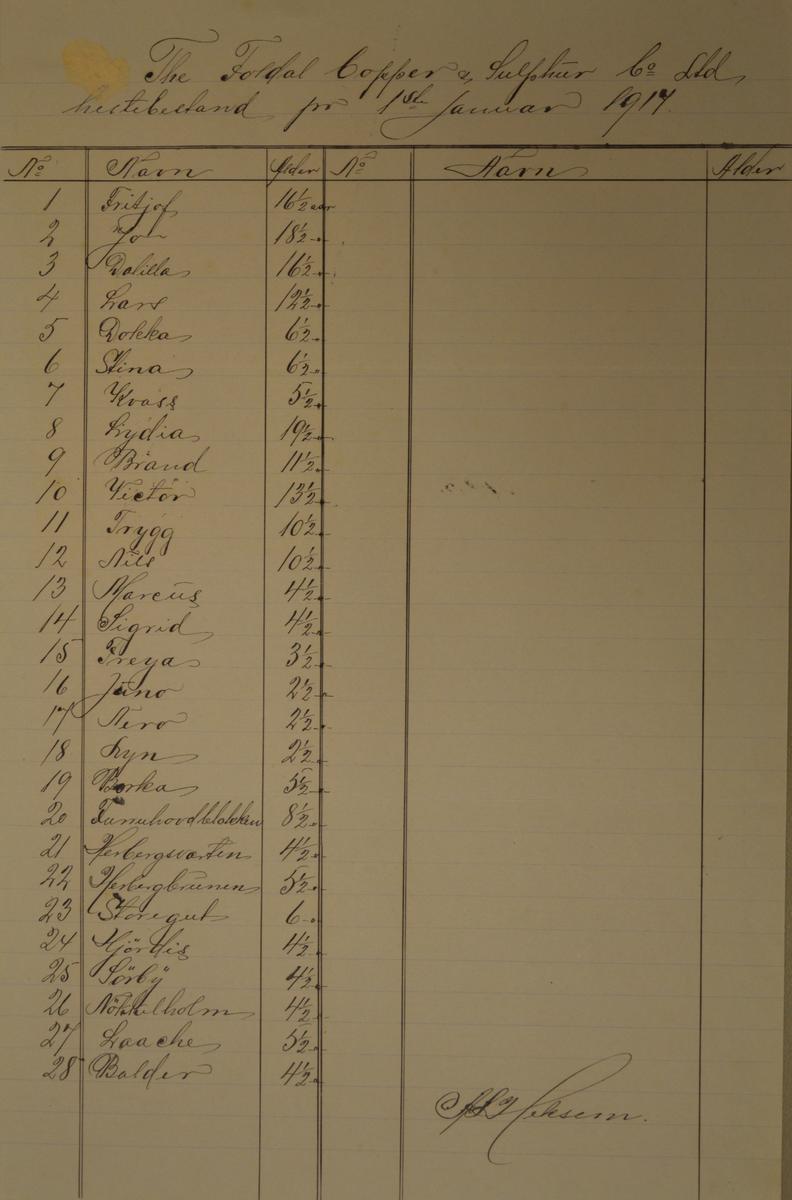 The Foldal Copper & Sulphur Co Ltd
hestebestand pr 1ste Januar 1917.
No Navn Alder No Navn Alder
1 Fritjof 16½ aar
2 Jon 18½ "
3 Dalilla 16½ "
4 Lars 12½ "
5 Dokka 6½ "
6 Stina 6½ "
7 Kvass 5½ "
8 Lydia 19½ "
9 Brand 11½ "
10 Victor 13½ "
11 Trygg 10½ "
12 Nils 10½ "
13 Marcus 4½ "
14 Sigrid 4½ "
15 Freya 3½ "
16 Juno 2½ "
17 Nero 2½ "
18 Lyn 2½ "
19 Borka 5½ "
20 Furruhovdblakken 8½ "
21 Herbergsvarten 4½ "
22 Herbergbrunen 5½ "
23 Storegut 6 "
24 Hjördis 4½ "
25 Sörby 4½ "
26 Nökkelholm 4½ "
27 Laache 5½ "
28 Balder 4½ "